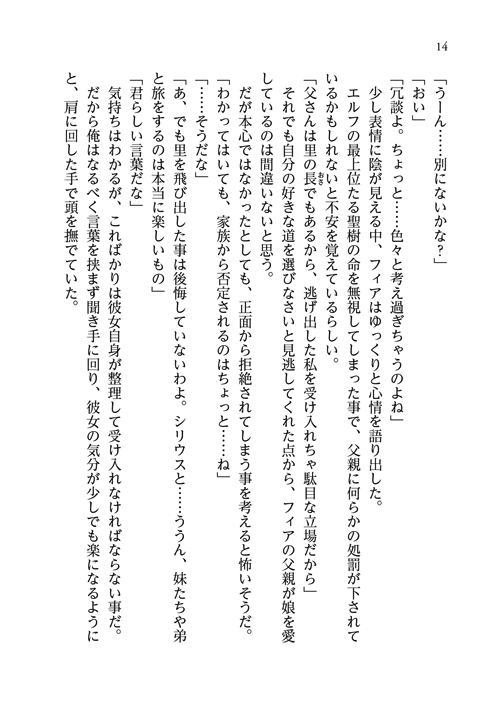 14
「うーん……別にないかな？」
「おい」
「冗談よ。ちょっと……色々と考え過ぎちゃうのよね」
少し表情に陰が見える中、フィアはゆっくりと心情を語り出した。
エルフの最上位たる聖樹の命を無視してしまった事で、父親に何らかの処罰が下されて
いるかもしれないと不安を覚えているらしい。
「父さんは里の長おさでもあるから、逃げ出した私を受け入れちゃ駄目な立場だから」
それでも自分の好きな道を選びなさいと見逃してくれた点から、フィアの父親が娘を愛
しているのは間違いないと思う。
だが本心ではなかったとしても、正面から拒絶されてしまう事を考えると怖いそうだ。
「わかってはいても、家族から否定されるのはちょっと……ね」
「……そうだな」
「あ、でも里を飛び出した事は後悔していないわよ。シリウスと……ううん、妹たちや弟
と旅をするのは本当に楽しいもの」
「君らしい言葉だな」
気持ちはわかるが、こればかりは彼女自身が整理して受け入れなければならない事だ。
だから俺はなるべく言葉を挟まず聞き手に回り、彼女の気分が少しでも楽になるように
と、肩に回した手で頭を撫でていた。